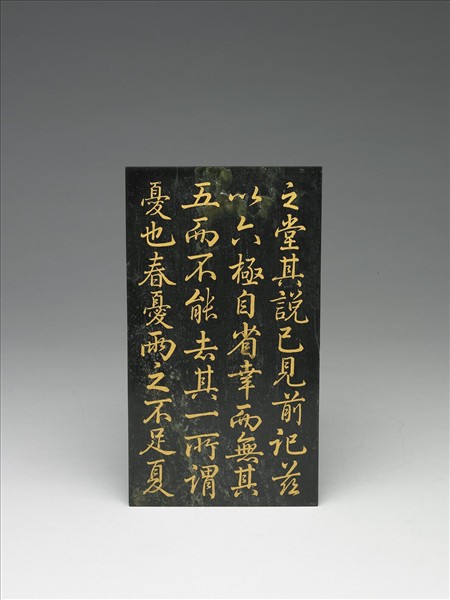 之堂其說已見前記茲
以六極自省幸而無其
五而不能去其一所謂
憂也春憂雨之不足夏